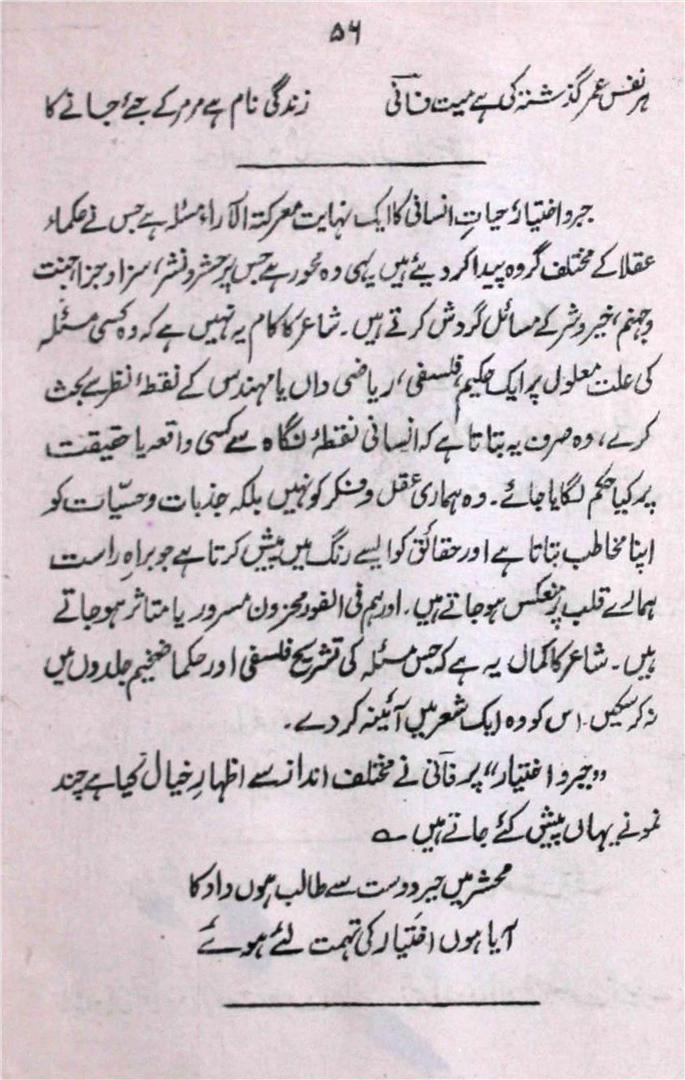 ۵۶
ہر نفس عمر گذشتہ کی ہے میت فانی زندگی نام ہے مرمر کے جئے جانے کا
جبر و اختیار حیاتِ انسانی کا ایک نہایت معرکۃ الآراء مسئلہ ہے جس نے حکماء
عقلا کے مختلف گروہ پیدا کر دیئے ہیں یہی وہ محور ہے جس پر حشر و نشر، سزا و جزا، جنت
و جہنم، خیر و شر کے مسائل گردش کرتے ہیں۔ شاعر کا کام یہ نہیں ہے کہ وہ کسی مسئلہ
کی علت معلول پر ایک حکیم، فلسفی، ریاضی داں یا مہندس کے نقطۂ نظر سے بحث
کرے، وہ صرف یہ بتاتا ہے کہ انسانی نقطۂ نگاہ سے کسی واقعہ یا حقیقت
پر کیا حکم لگایا جائے۔ وہ ہماری عقل و فکر کو نہیں بلکہ جذبات و حسیّات کو
اپنا مخاطب بناتا ہے اور حقائق کو ایسے رنگ میں پیش کرتا ہے جو براہِ راست
ہمارے قلب پر منعکس ہو جاتے ہیں۔ اور ہم فی الفور محزون مسرور یا متاثر ہو جاتے
ہیں۔ شاعر کا کمال یہ ہے کہ جس مسئلہ کی تشریح فلسفی اور حکما ضخیم جلدوں میں
نہ کر سکیں۔ اس کو وہ ایک شعر میں آئینہ کر دے۔
"جبر و اختیار" پر فانی نے مختلف انداز سے اظہارِ خیال کیا ہے چند
نمونے یہاں پیش کئے جاتے ہیں ؎
محشر میں جبر دوست سے طالب ہوں داد کا
آیا ہوں اختیار کی تہمت لئے ہوئے